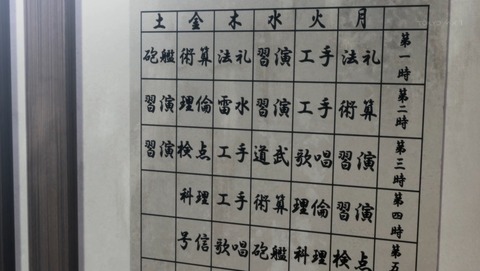 月 火 水 木 金 土
第一時 礼法 手工 演習 礼法 算術 艦砲
第二時 算術 手工 演習 水雷 倫理 演習
第三時 演習 唱歌 武道 手工 点検 演習
第四時 演習 倫理 算術 手工 理科
第五 点検 理科 艦砲 唱歌 信号